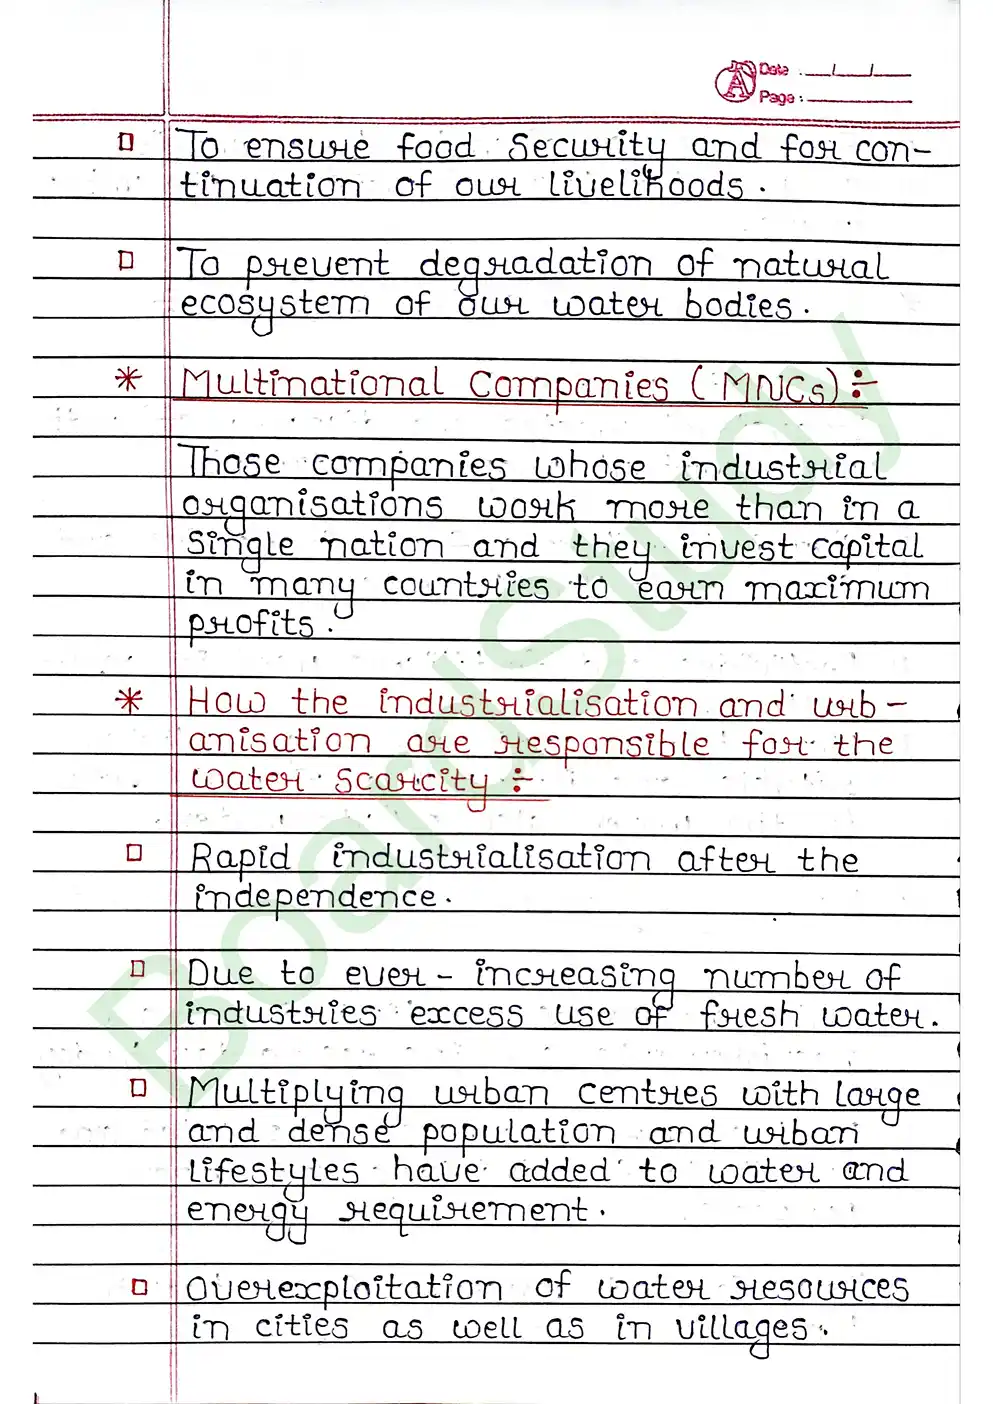 Date : __/__/__
Page : ________
□ To ensure food security and for con-
tinuation of our livelihoods.
□ To prevent degradation of natural
ecosystem of our water bodies.
* Multinational Companies (MNCs) ÷
Those companies whose industrial
organisations work more than in a
single nation and they invest capital
in many countries to earn maximum
profits.
* How the industrialisation and urb-
anisation are responsible for the
water scarcity ÷
□ Rapid industrialisation after the
independence.
□ Due to ever - increasing number of
industries excess use of fresh water.
□ Multiplying urban centres with large
and dense population and urban
lifestyles have added to water and
energy requirement.
□ Overexploitation of water resources
in cities as well as in villages.
BoardStudy